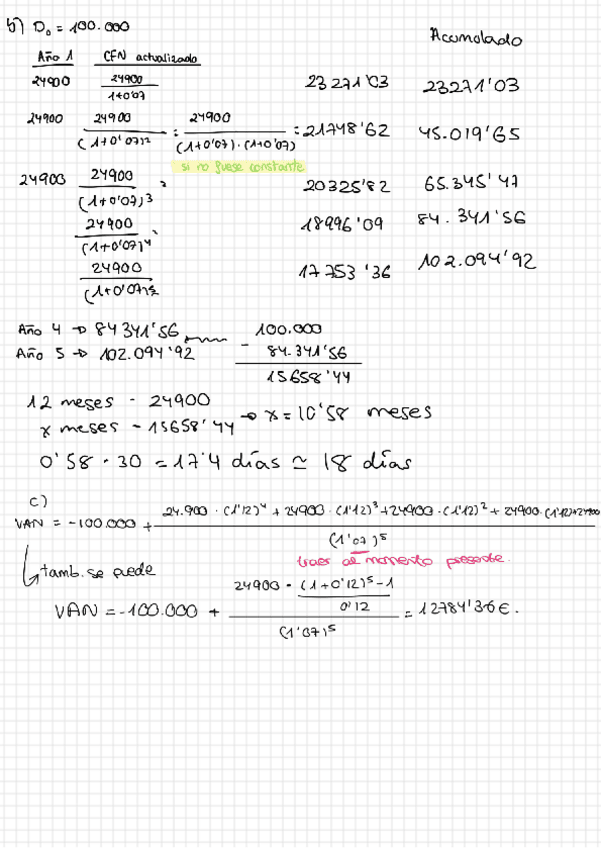 b) D₀ = 100.000
Acumulado
Año 1 CFN actualizado
24900 24900/1+0'07 23271'03 23271'03
24900 24900/(1+0'07)² = 24900/(1+0'07)·(1+0'07) = 21748'62 45.019'65
si no fuese constante
24900 24900/(1+0'07)³ 20325'82 65.345'47
24900/(1+0'07)⁴ 18996'09 84.341'56
24900/(1+0'07)⁵ 17753'36 102.094'92
Año 4 → 84341'56 100.000
Año 5 → 102.094'92 - 84.341'56
15658'44
12 meses - 24900
x meses - 15658'44 → x = 10'58 meses
0'58 · 30 = 17'4 días ≃ 18 días
c)
VAN = -100.000 + 24.900·(1'12)⁴ + 24900·(1'12)³ + 24900·(1'12)² + 24900·(1'12) + 24900/(1'07)⁵
traer al momento presente.
tamb. se puede
VAN = -100.000 + 24900 · (1+0'12)⁵-1/0'12/(1'07)⁵ = 12784'36€.